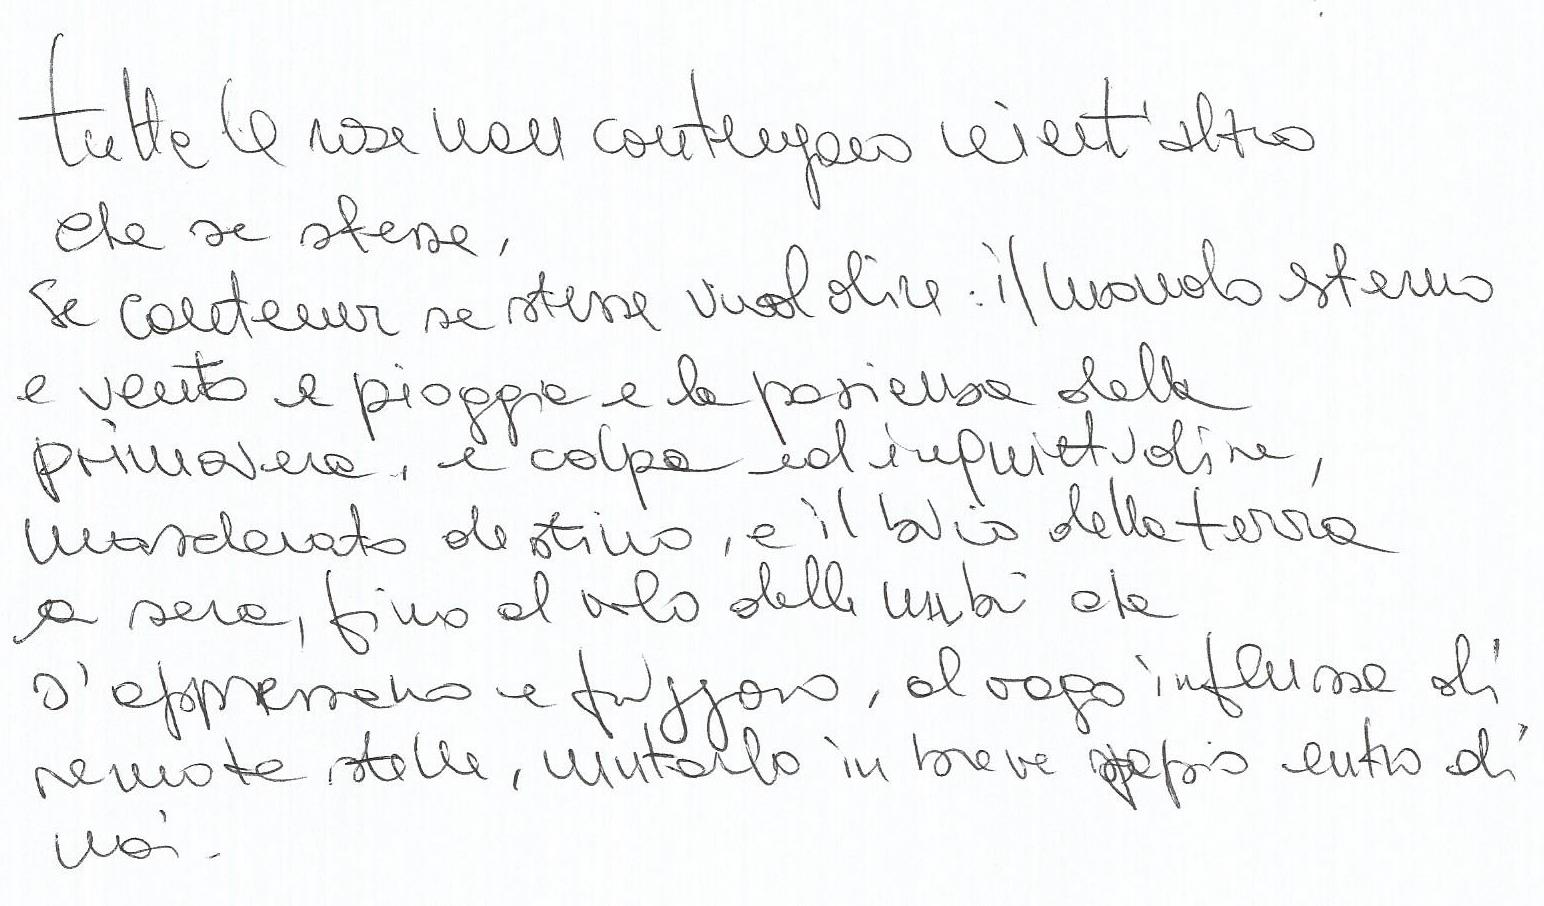 tutte le rose non contengono nient'altro
che se stesse,
Se contener se stesse vuol dire: il mondo esterno
e vento e pioggia e la pazienza della
primavera, e colpa ed inquietudine,
mascherato destino, e il buio della terra
a sera, fino al volo delle nubi che
s'appressano e fuggono, al vago influsso di
remote stelle, mutarlo in breve spazio entro di
noi.